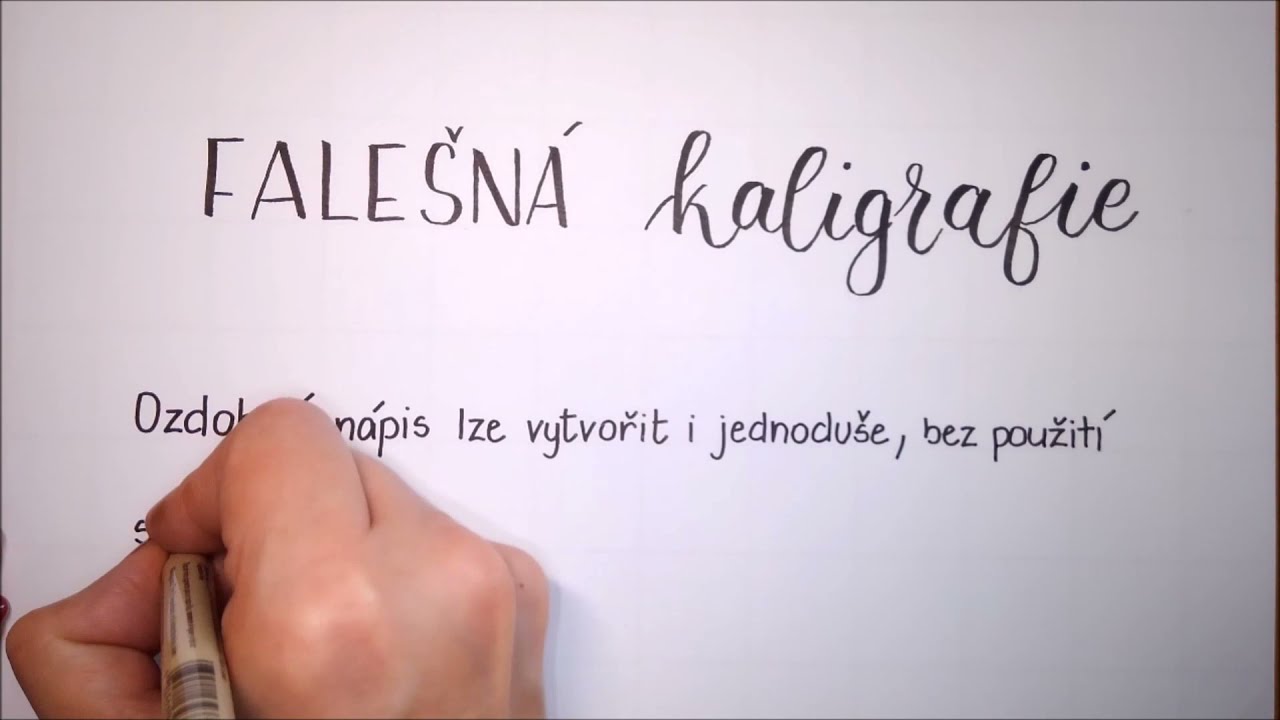 FALEŠNÁ kaligrafie
nápis lze vytvořit i jednoduše, bez použití